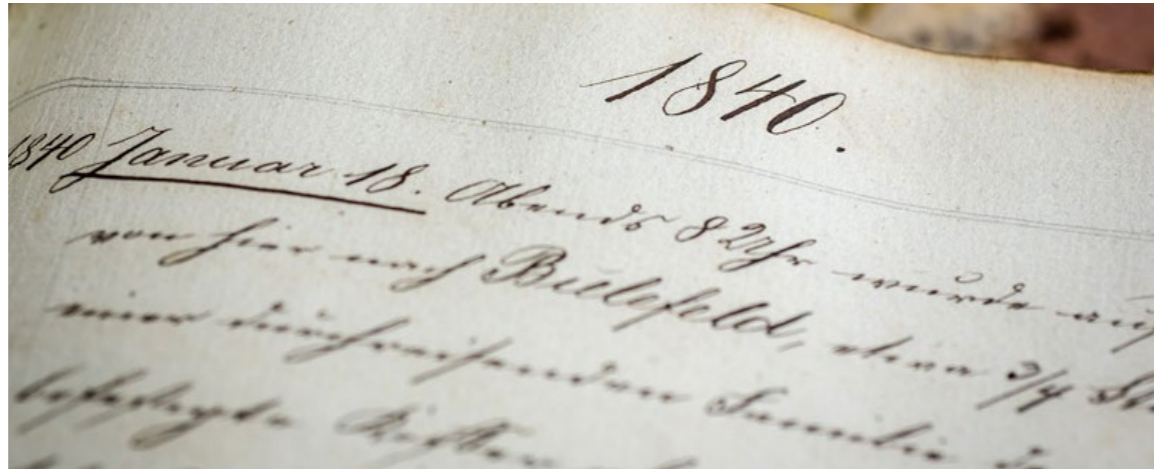 1840.
1840 Januar 18. Abends 8 Uhr wurde auf
von hier nach Bielefeld, etwa 3/4 St
einer durchreisenden Familie d
befestigte Koffer